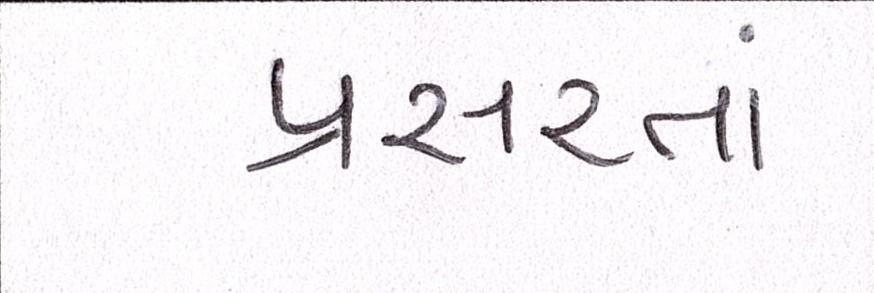 પ્રસરતાં